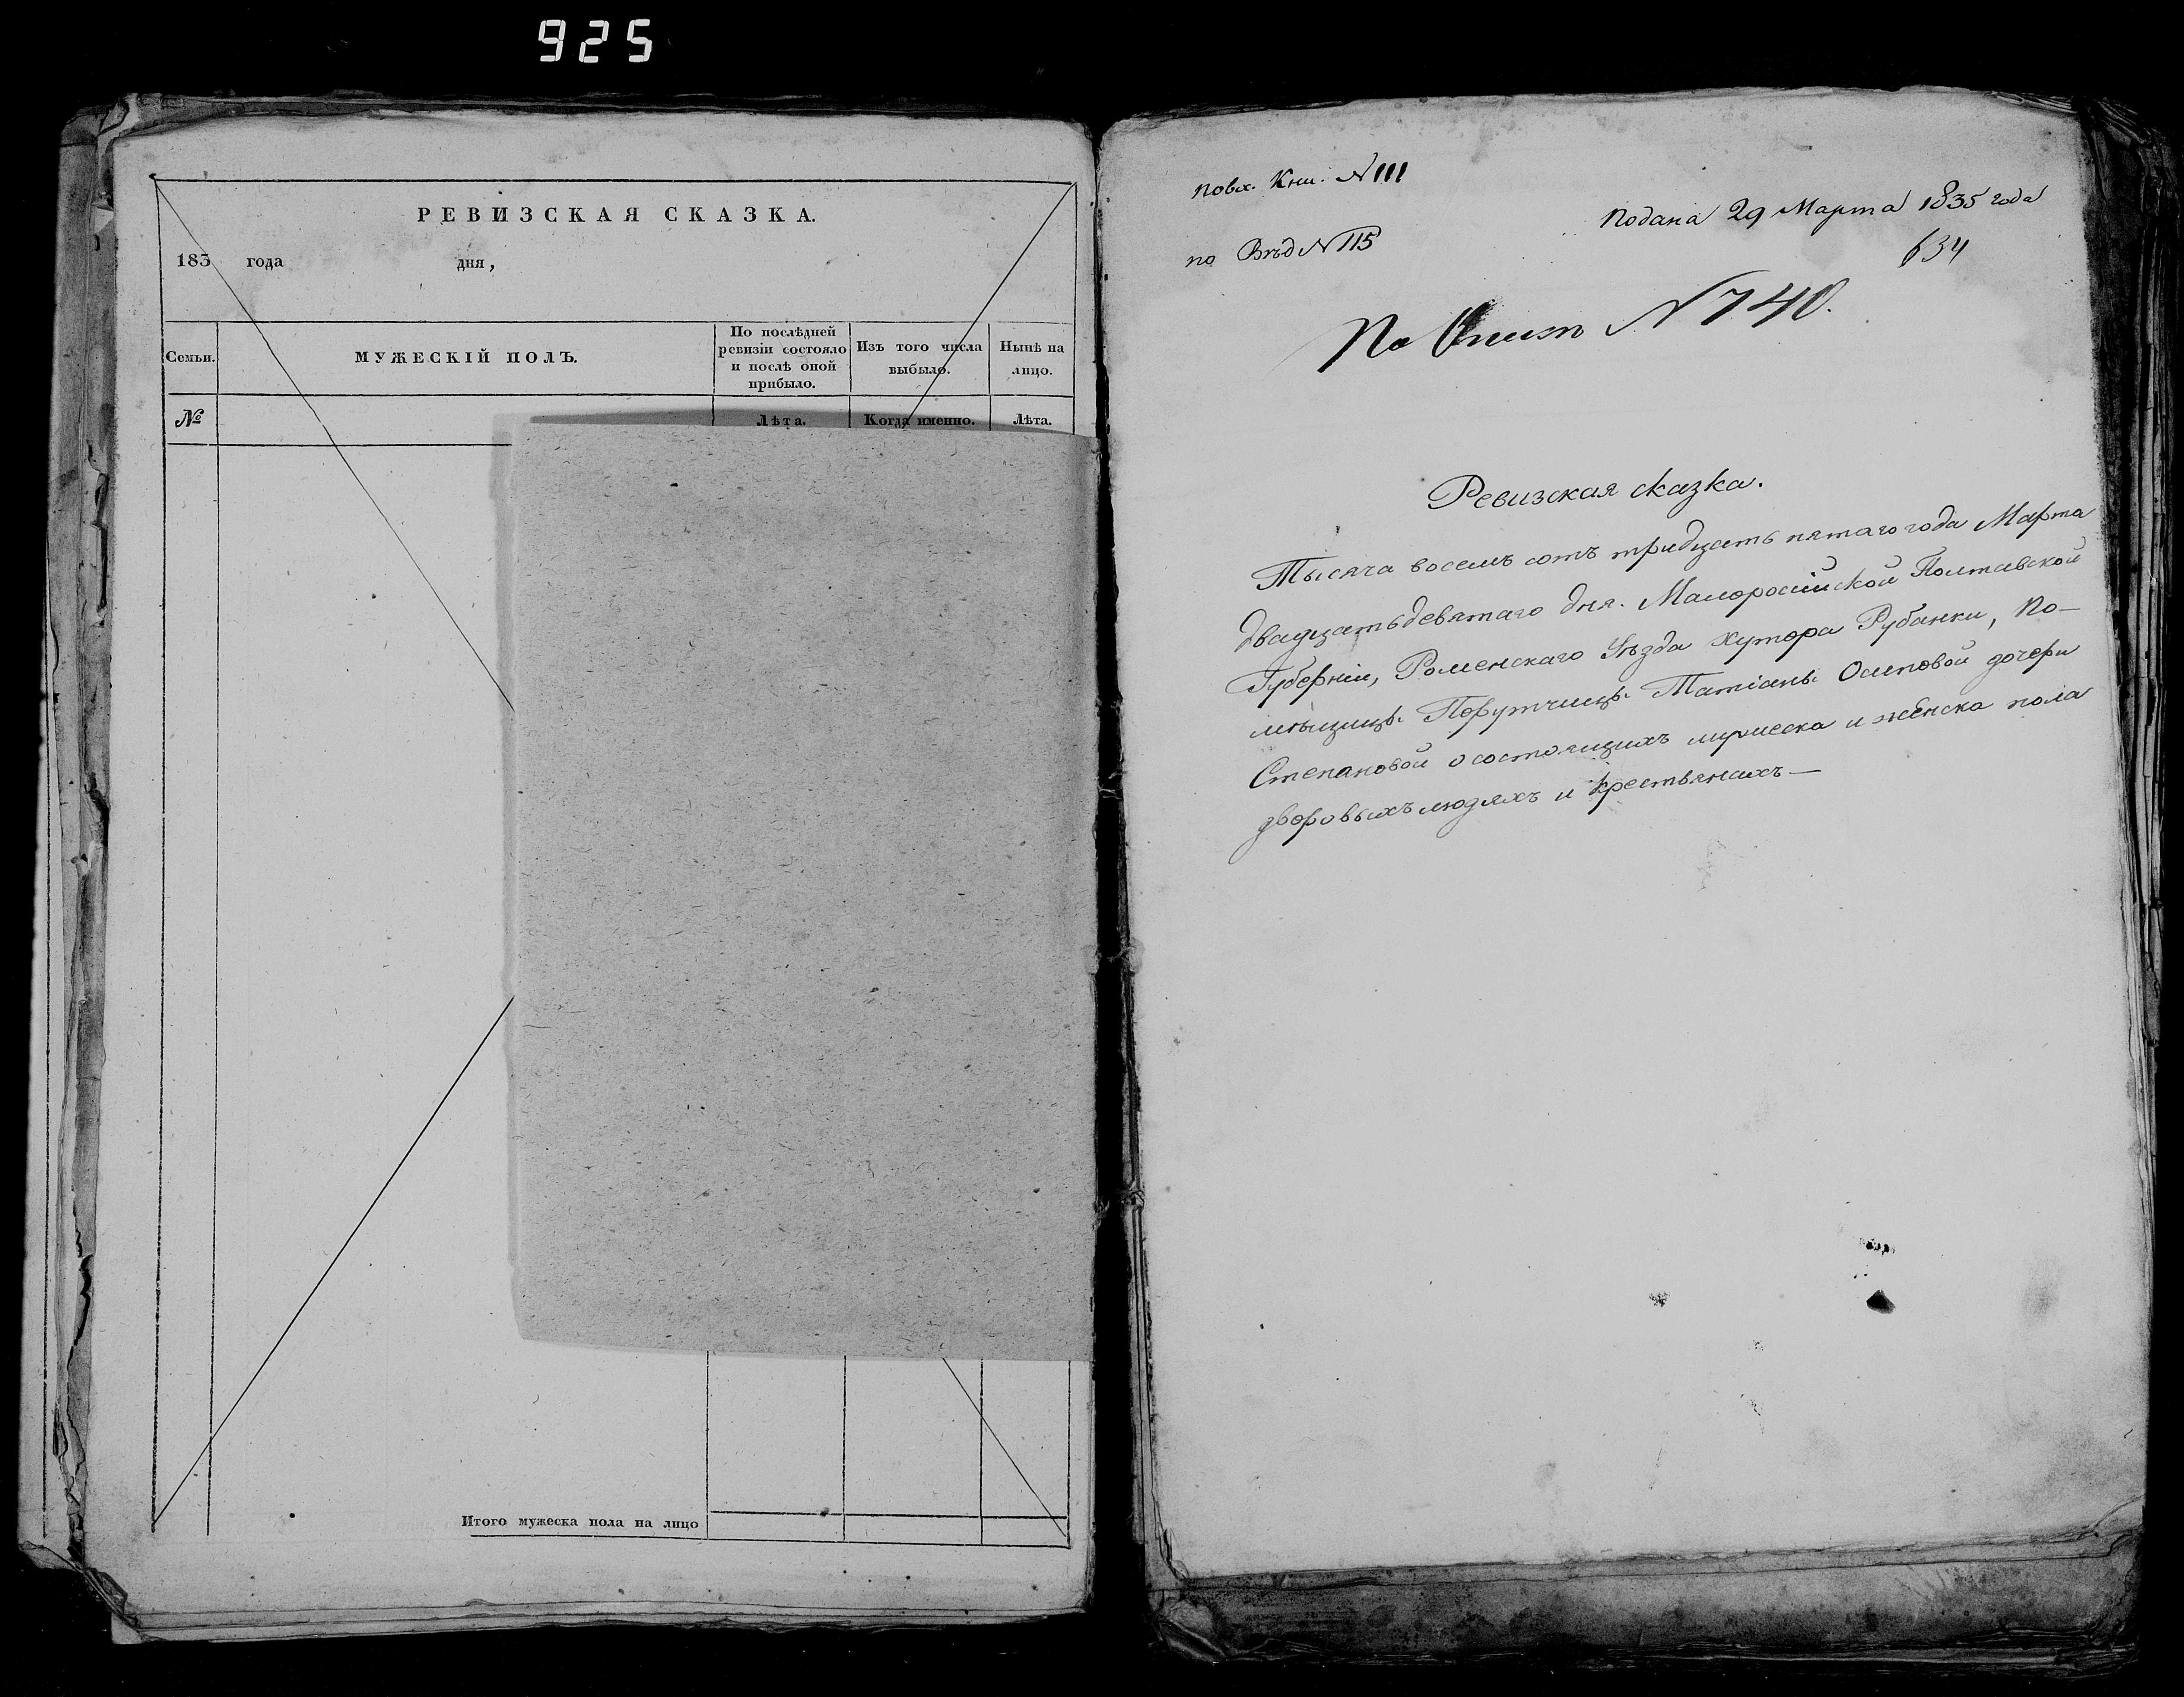 925
РЕВИЗСКАЯ СКАЗКА.
183 года дня,
Семьи.
МУЖЕСКІЙ ПОЛЪ.
По послѣдней
ревизіи состояло
и послѣ оной
прибыло.
Изъ того числа
выбыло.
Нынѣ на
лицо.
№
Лѣта.
Когда именно.
Лѣта.
Итого мужеска пола на лицо
По вх. Кни. N 111
Подана 29 Марта 1835 года
по Вѣд N 115
634
По Описи N 740.
Ревизская сказка.
Тысяча восемь сотъ тридцать пятаго года Марта
двадцать девятаго дня. Малоросійской Полтавской
Губерніи, Роменскаго Уѣзда хутора Рубанки, По-
мѣщицы Порутчицы Татіаны Осиповой дочери
Степановой о состоящихъ мужеска и женска пола
дворовыхъ людяхъ и крестьянахъ—